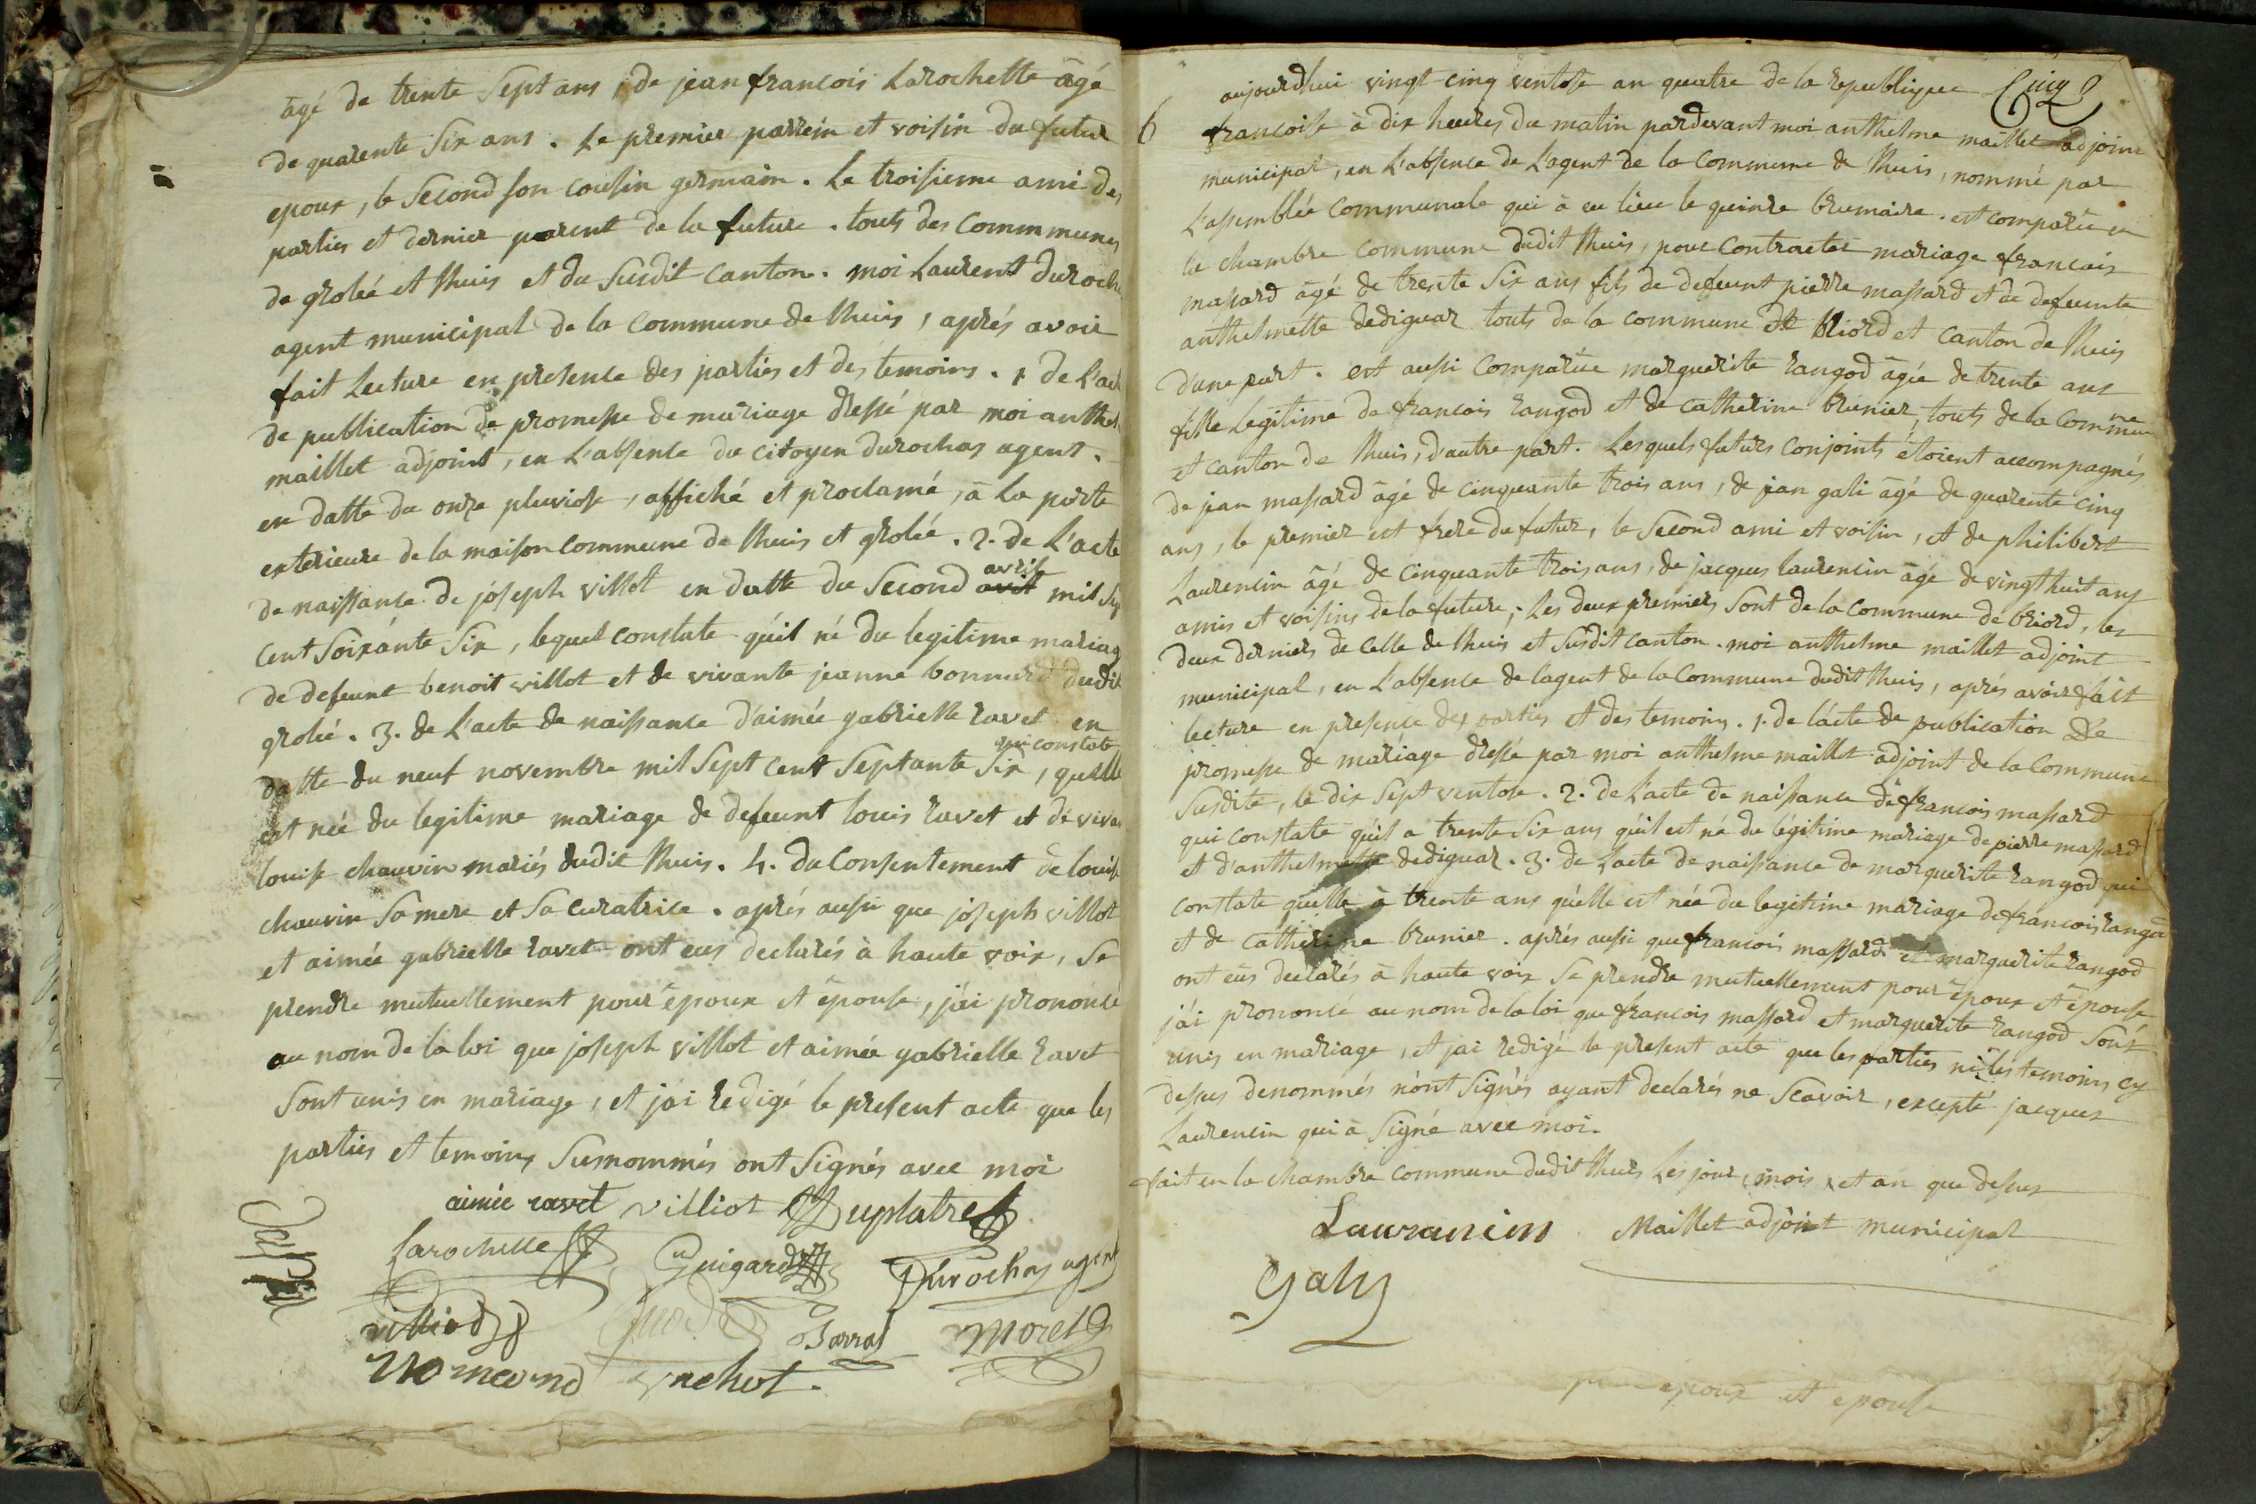 âgé de trente Sept ans, de jean francois Larochette âgé
de quarente Six ans. Le premier parrein et voisin du futur
epoux, le Second son cousin germain. Le troisieme ami des
parties et dernier parent de la future. touts des Commmunes
de groleé et lhuis et du Susdit canton. moi Laurent duroch
agent municipal de la commune de lhuis, aprés avoir
fait Lecture en presence des parties et des temoins. 1. de L'act
de publication de promesse de mariage dressé par moi anthel
maillet adjoint, en L'absence du citoyen durochas agent.
en datte du onze pluviose, affiché et proclamé, à La porte
exterieure de la maison commune de lhuis et groleé. 2. de L'acte
de naissance de jóseph villot en datte du Second avril mil Sep
cent Soixánte Six, lequel constate qu'il né du legitime mariag
de defeunt benoit villot et de vivante jeanne bonnard dudit
groleé. 3. de L'acte de naissance d'aimée gabrielle ravet en
datte du neuf novembre mil Sept cent Septante Six, qui constate quelle
est née du legitime mariage de defeunt louis ravet et de viva
louise chauvin mariés dudit lhuis. 4. du Consentement de louise
chauvin Sa mere et Sa curatrice. aprés aussi que jóseph villot
et aimée gabrielle ravet ont eus declarés à haute voix, Se
prendre mutuellement pour époux et épouse, j'ai prononcé
au nom de la loi que jóseph villot et aimée gabrielle ravet
Sont unis en mariage, et j'ai redigé le present acte que les
parties et temoins Susnommés ont Signés avec moi
aimée ravet villiot Duplatre
Larochette Guigard Durochas agent
villiod Barral morel
vachot.
aujourdhui vingt cinq ventose an quatre de la republique Cinq
6 francoise à dix heures du matin pardevant moi anthelme maillet adjoint
municipal, en L'absence de L'agent de la Commune de lhuis, nommé par
L'assemblée communale qui à eu lieu le quinze brumaire. est comparu en
la chambre commune dudit lhuis, pour Contracter mariage francois
massard âgé de trente Six ans fils de defeunt pierre massard et de defeunte
anthelmette dediguar touts de la commune de briord et canton de lhuis
d'une part. est aussi Comparüe marguerite rangod âgée de trente ans
fille Legitime de francois rangod et de catherine brunier, touts de la Commune
et canton de lhuis, d'autre part. Lesquels futurs conjoints étoient accompagnés
de jean massard âgé de cinquante trois ans, de jean gali âgé de quarente cinq
ans, le premier est frere du futur, le Second ami et voisin, et de philibert
Laurencin âgé de cinquante trois ans, de jacques laurencin âgé de vingt huit ans
amis et voisins de la future, Les deux premiers Sont de la commune de briord, les
deux derniers de celle de lhuis et Susdit canton. moi anthelme maillet adjoint
municipal, en L'absence de lagent de la Commune dudit lhuis, aprés avoir fait
lecture en presence des parties et des temoins. 1. de l'acte de publication de
promesse de mariage dressé par moi anthelme maillet adjoint de la Commune
Susdite, le dix Sept ventose. 2. de L'acte de naissance de francois massard
qui constate qu'il a trente Six ans qu'il est né du légitime mariage de pierre massard
et d'anthelmette dediguar. 3. de L'acte de naissance de marguerite rangod qui
constate quelle à trente ans qu'elle est née du legitime mariage de francois rangod
et de catherine brunier. aprés aussi que francois massard et marguerite rangod
ont eüs declarés à haute voix Se prendre mutuellement pour époux et épouse
j'ai prononcé au nom de la loi que francois massard et marguerite rangod Sont
unis en mariage, et j'ai redigé le present acte que les parties ni les temoins cy
dessus denommés n'ont Signés ayant declarés ne Scavoir, excepté jacques
Laurencin qui à Signé avec moi.
fait en la chambre commune dudit lhuis Les jour, mois, et an que dessus
Lauranein Maillet adjoint municipal
Galy
époux et épouse